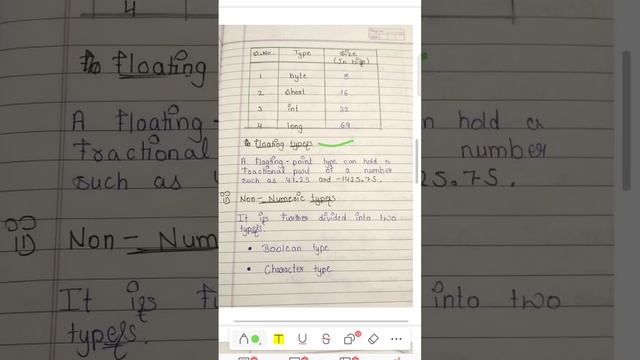 S.No. Type Size (In bits)
1 byte 8
2 short 16
3 int 32
4 long 64
floating types
A floating-point type can hold a
fractional part of a number
such as 47.25 and -1425.75.
ii) Non-Numeric types
It is further divided into two
types.
• Boolean type
• Character type